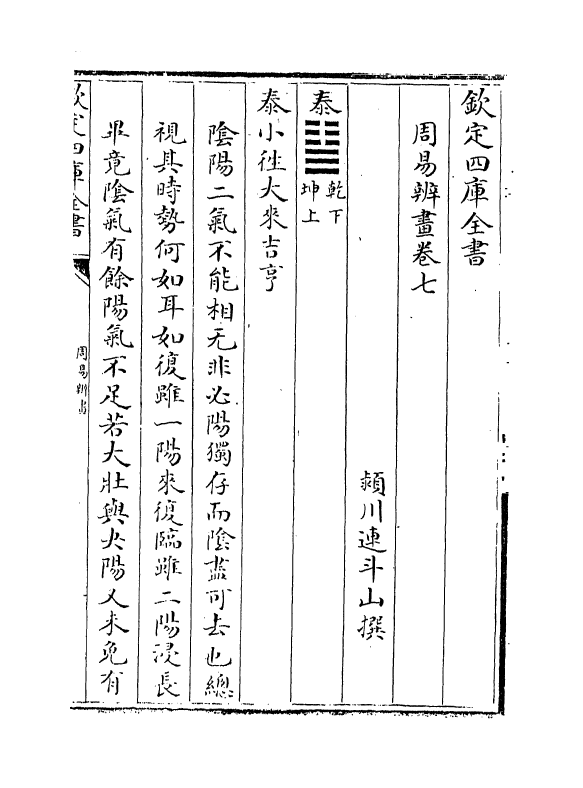 欽定四庫全書
周易辨畫卷七
潁川連斗山撰
泰䷊乾下坤上
泰小往大來吉亨
陰陽二氣不能相无非必陽獨存而陰盡可去也總
視其時勢何如耳如復雖一陽來復臨雖二陽浸長
畢竟陰氣有餘陽氣不足若大壯與夬陽又未免有
欽定四庫全書
周易辨畫